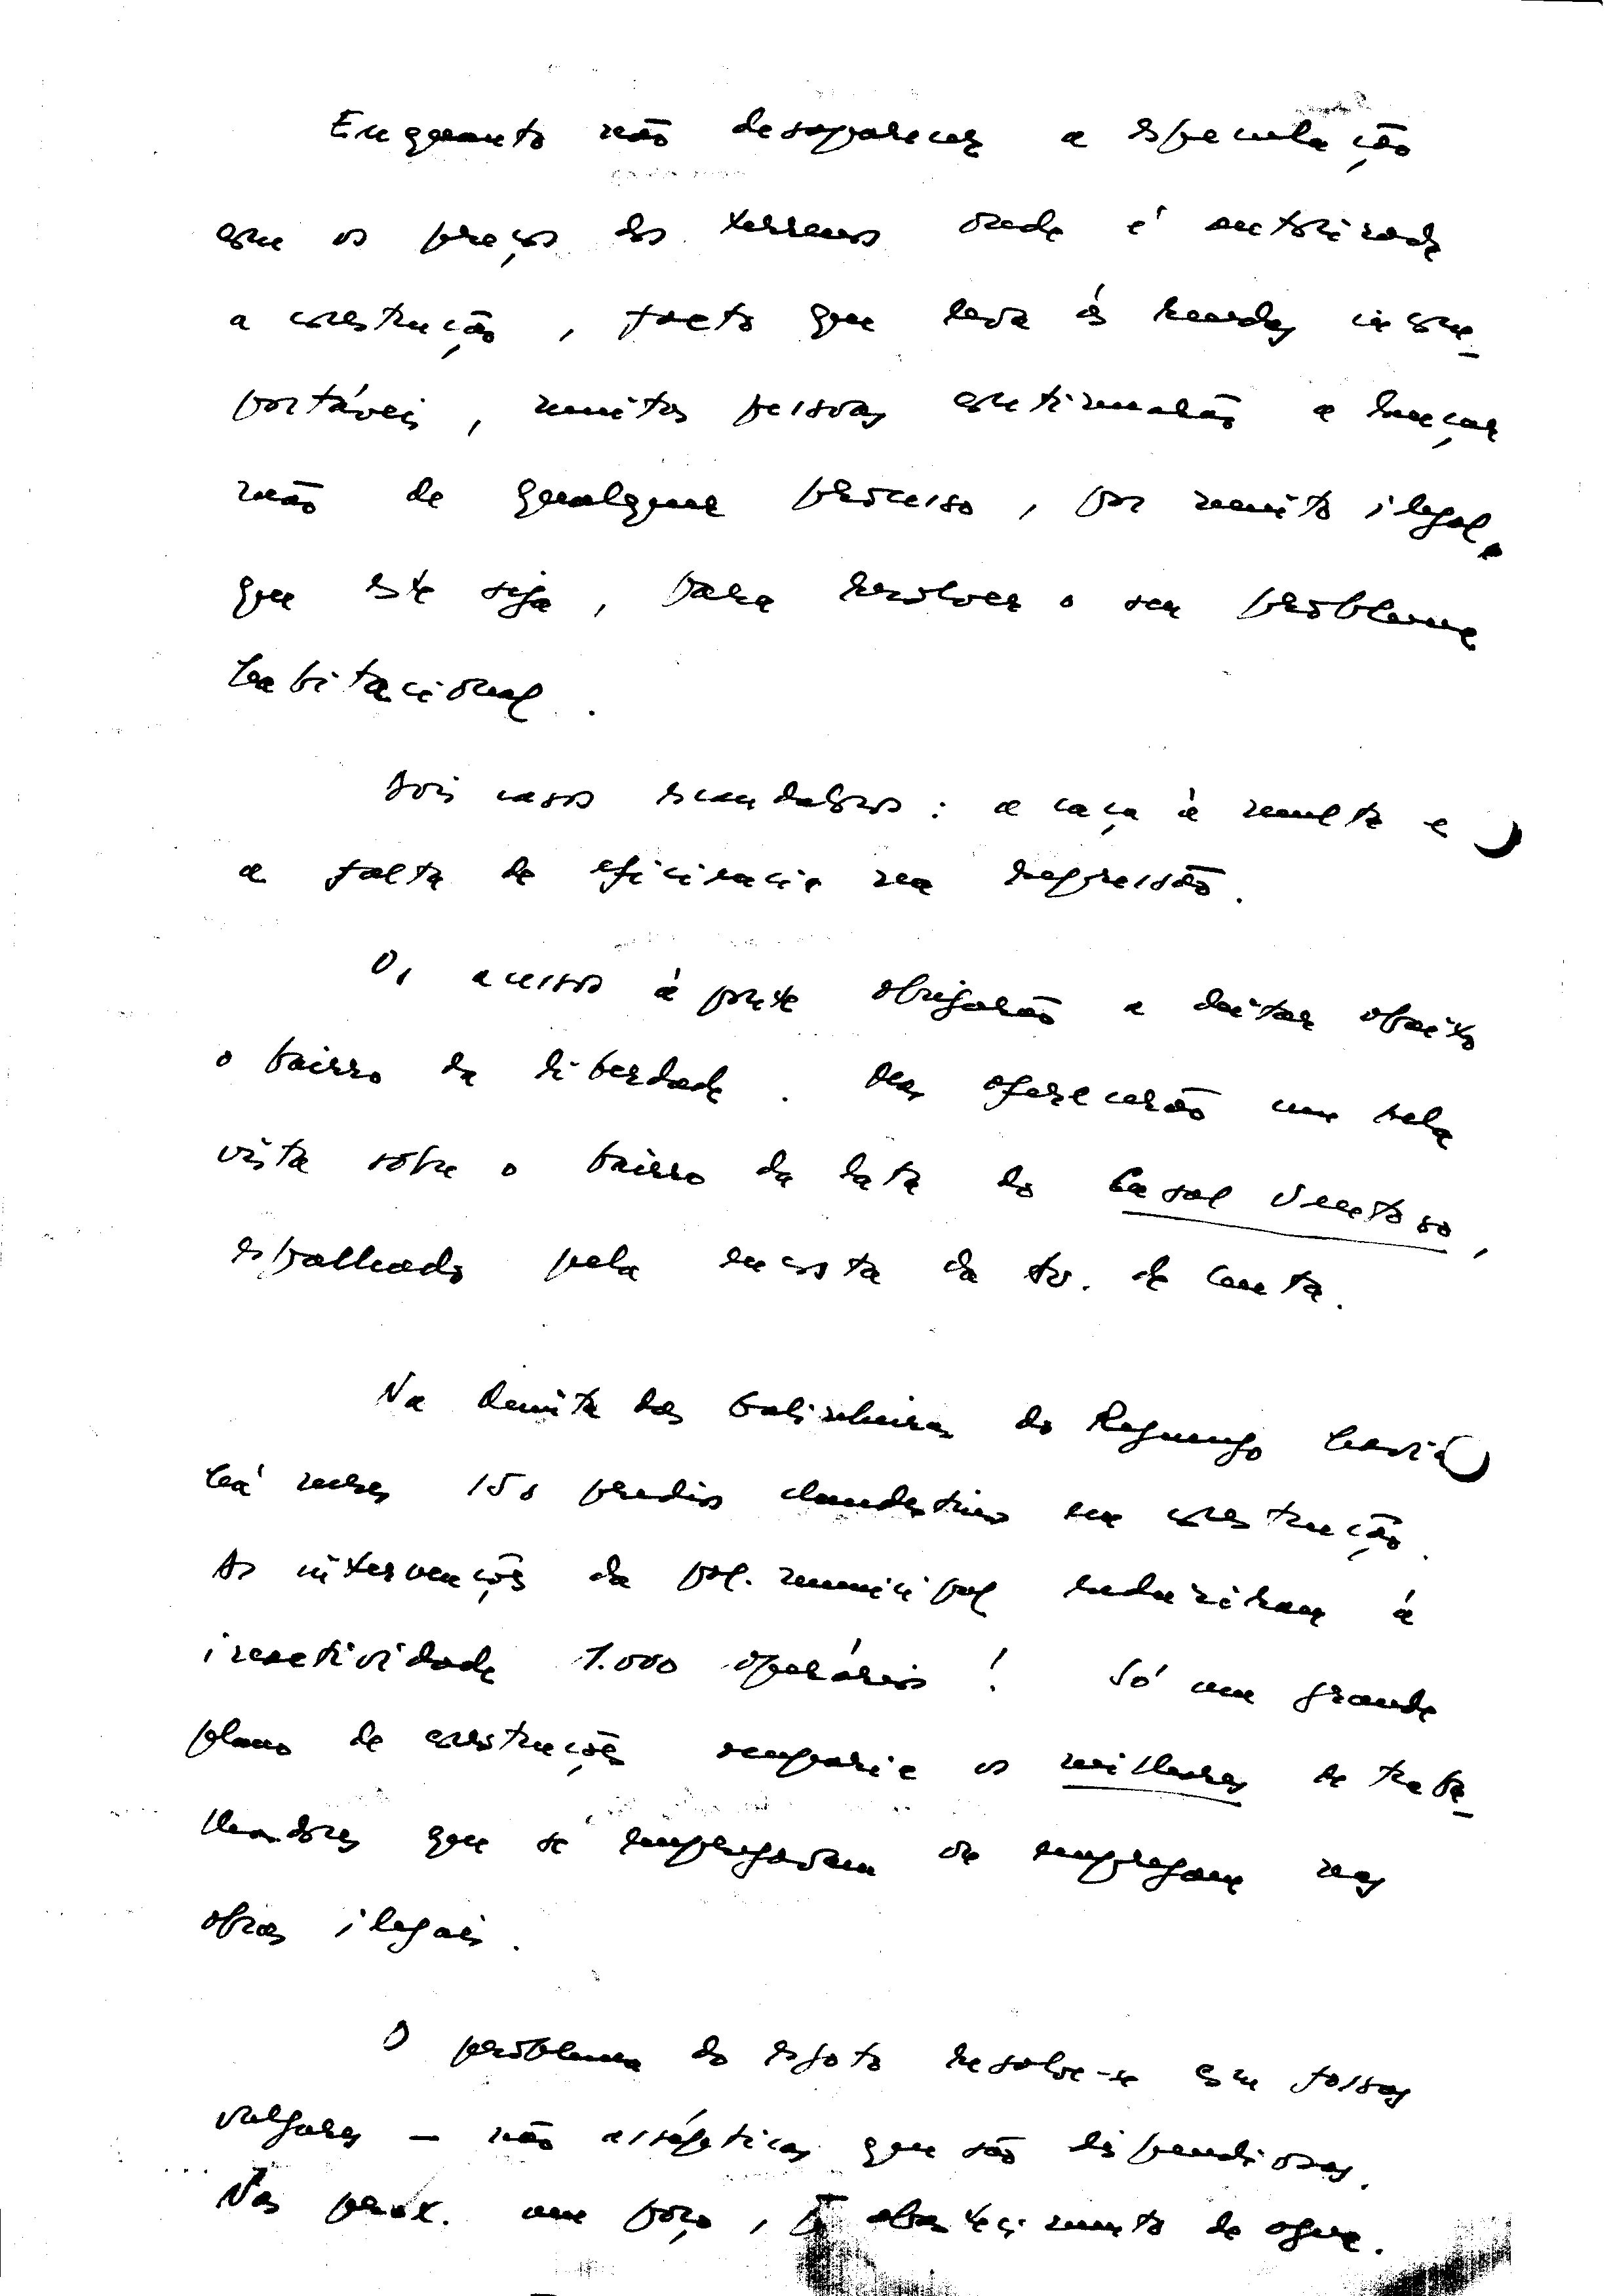 Enquanto não desaparecer a especulação
com os preços dos terrenos onde é autorizada
a construção, facto que leva às rendas insu-
portáveis, muitas pessoas continuarão a lançar
mão de qualquer processo, por muito ilegal
que este seja, para resolver o seu problema
habitacional.
Dois casos escandalosos: a caça à multa e
a falta de eficiencia na repressão.
Os acessos à ponte obrigarão a deitar abaixo
o bairro da Liberdade. Mas oferecerão uma bela
vista sobre o bairro da lata do Casal Ventoso,
espalhado pela encosta da Av. de Ceuta.
Na Quinta das Galinheiras do Reguengo havia
há meses 150 predios clandestinos em construção.
As intervenções da pol. municipal reduziram à
inactividade 1.000 operários! Só um grande
plano de construções ocuparia os milhares de traba-
lhadores que se empregavam ou empregam nas
obras ilegais.
O problema do esgoto resolve-se com fossas
vulgares — não assépticas que são dispendiosas.
Nas prox. um poço, abastecimento de agua.